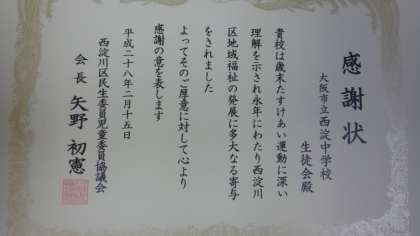 感謝状
大阪市立西淀中学校
生徒会殿
貴校は歳末たすけあい運動に深い
理解を示され永年にわたり西淀川
区地域福祉の発展に多大なる寄与
をされました
よってそのご厚意に対して心より
感謝の意を表します
平成二十八年二月十五日
西淀川区民生委員児童委員協議会
会長 矢野初憲